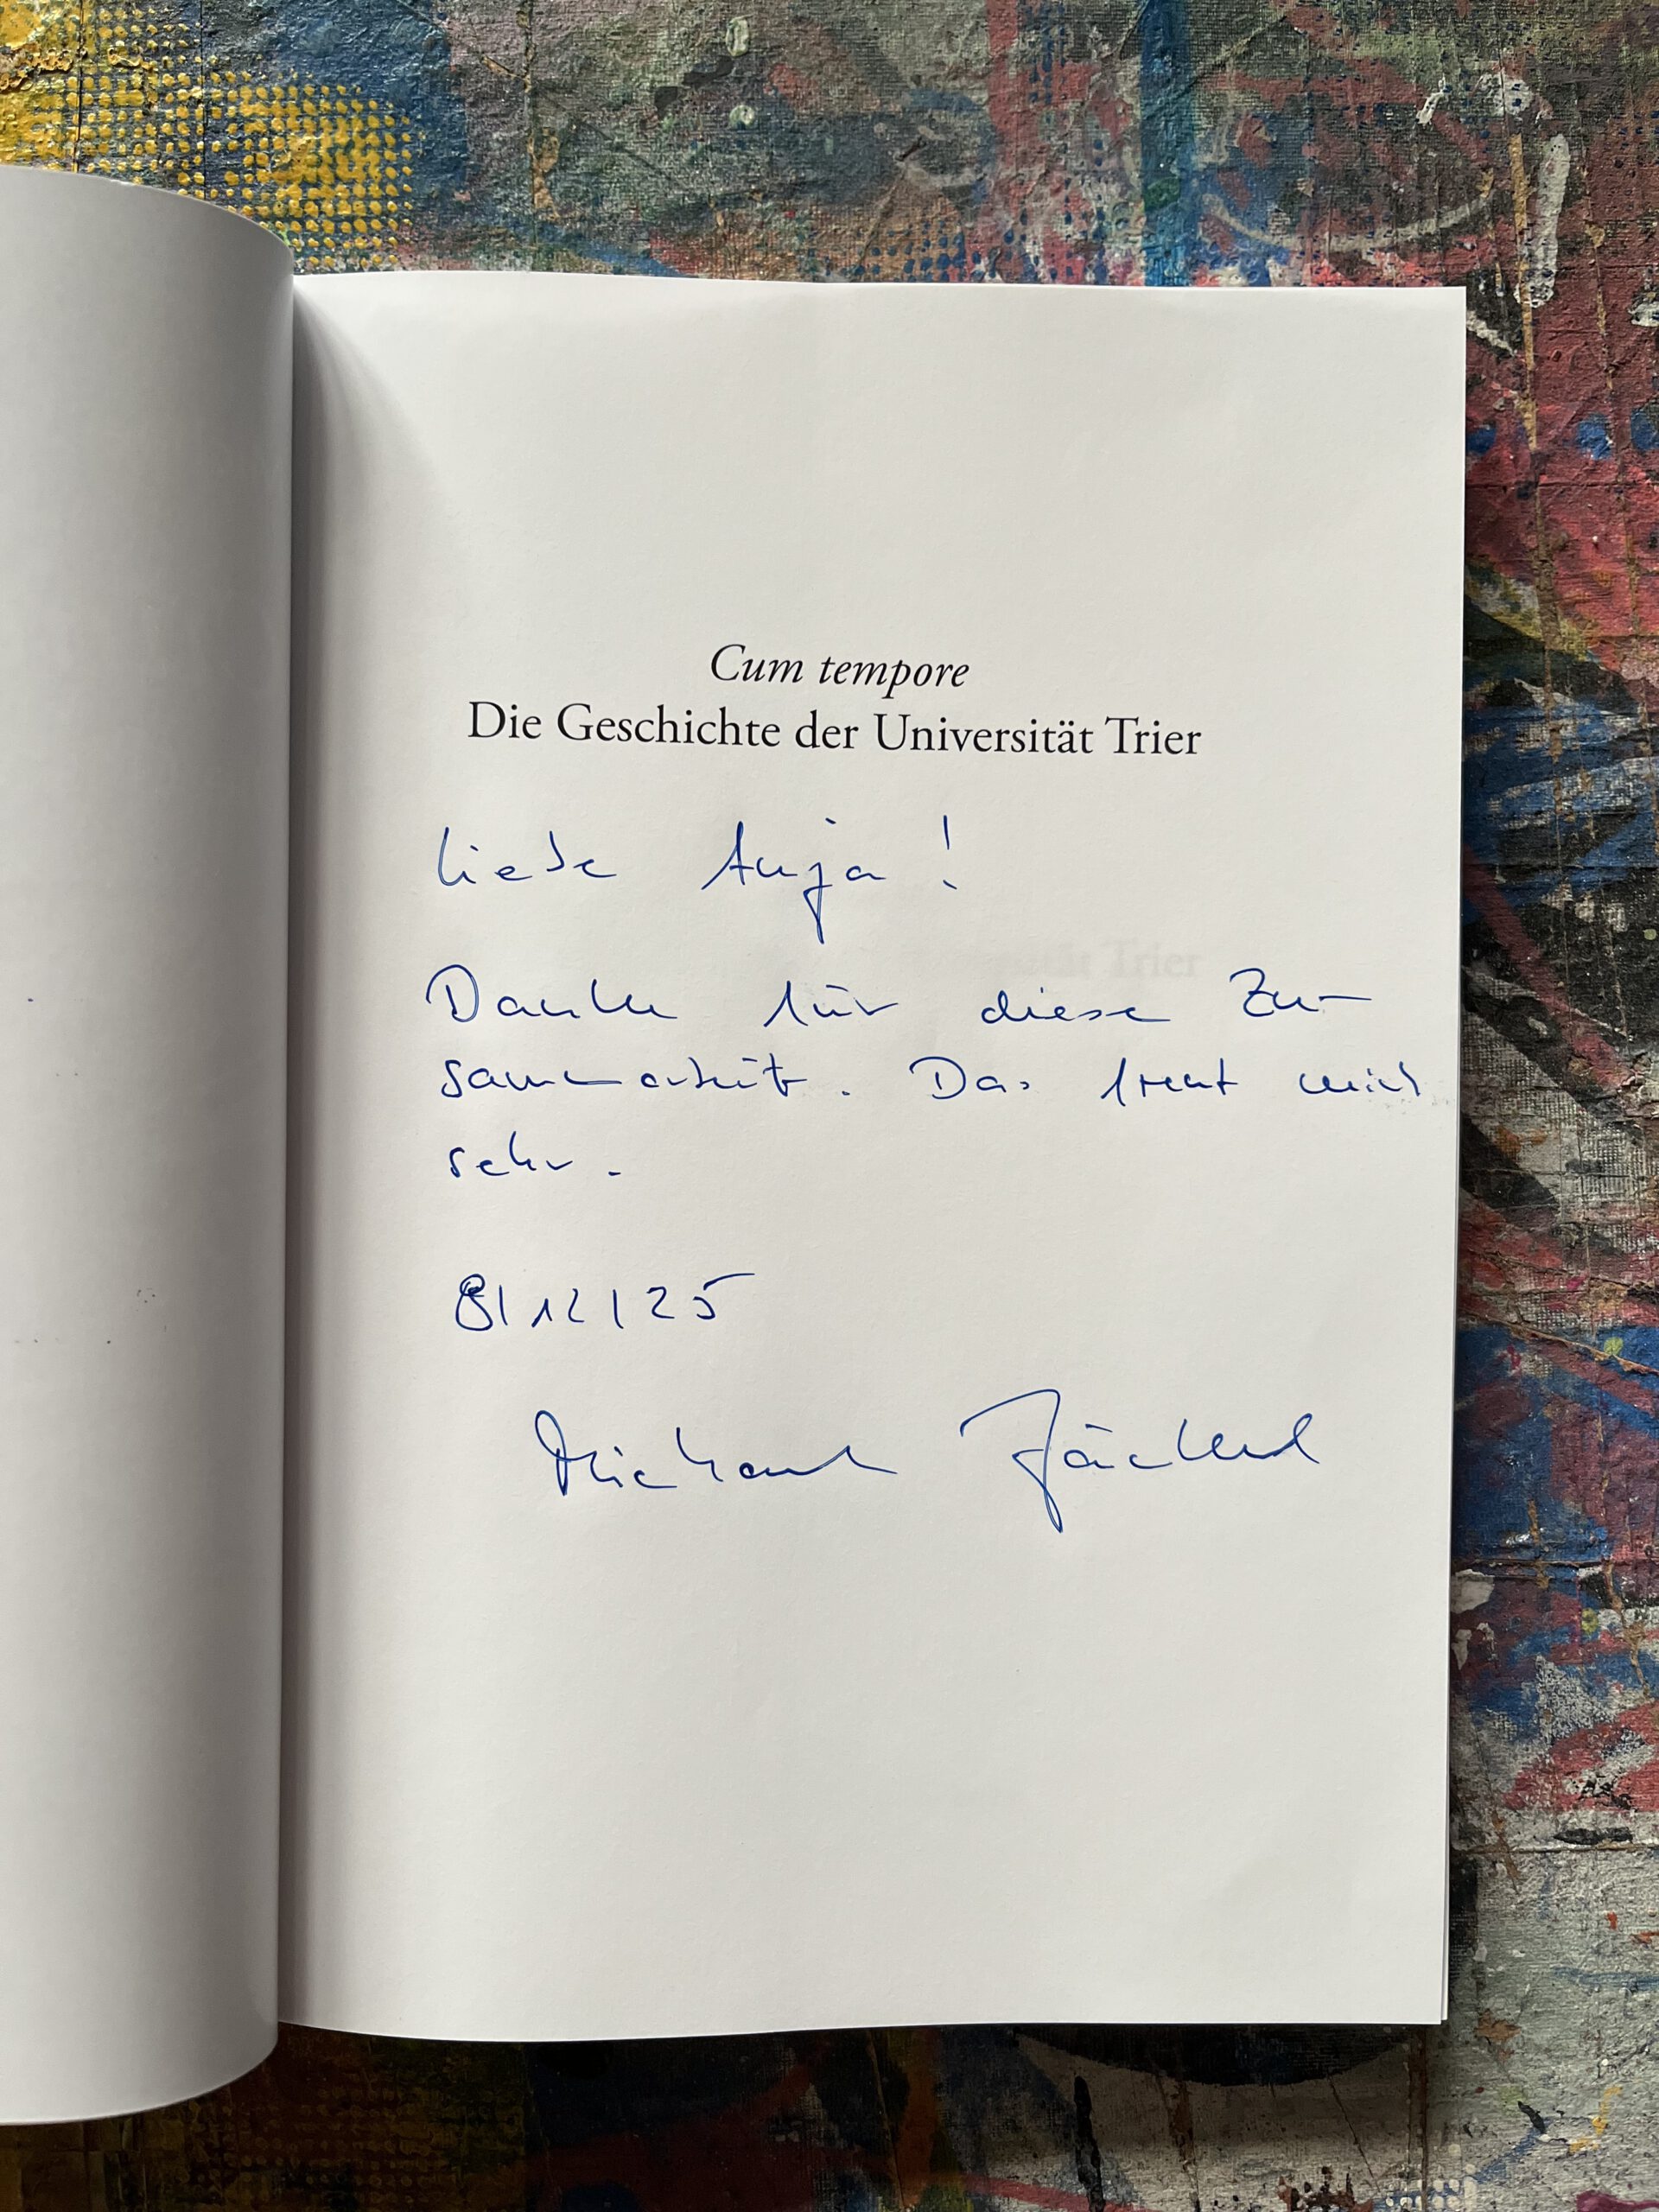 Cum tempore
Die Geschichte der Universität Trier
Liebe Anja!
Danke für diese Zu-
sammenarbeit. Das freut mich
sehr.
8/12/25
Michael Jäckel